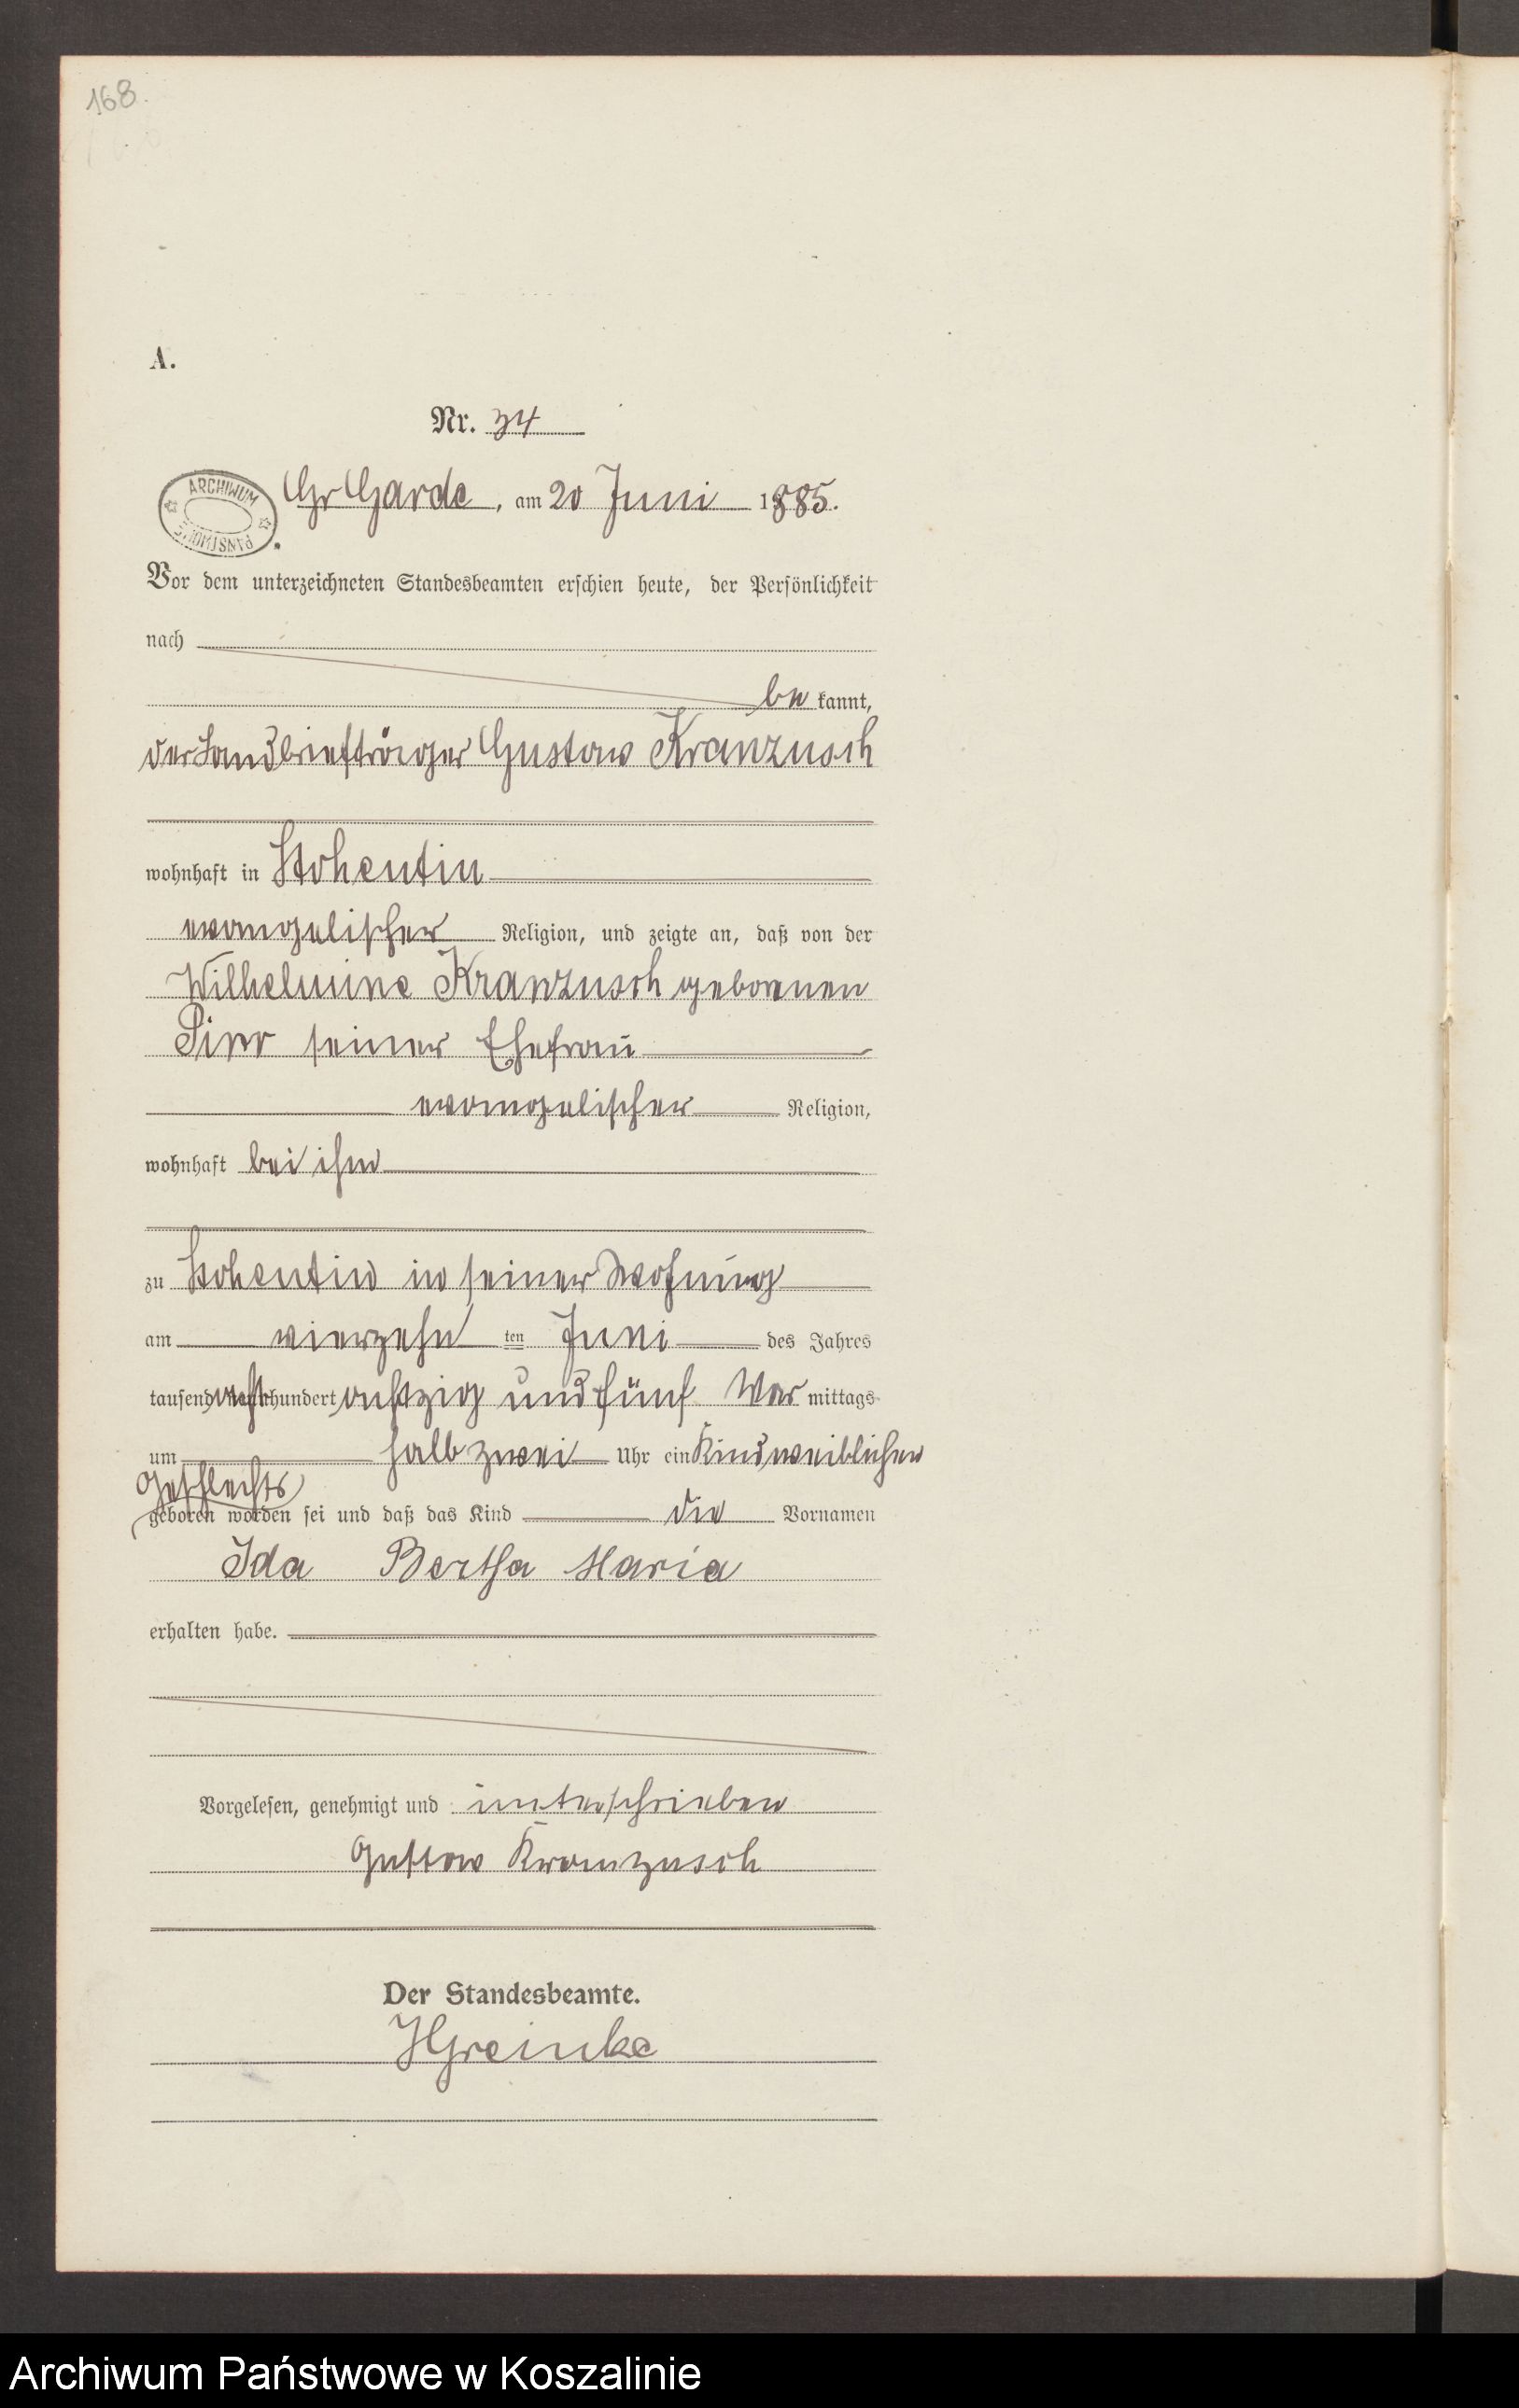 168.
A.
Nr. 34
ARCHIWUM PAŃSTWOWE
Gr Garde, am 20 Juni 1885.
Vor dem unterzeichneten Standesbeamten erschien heute, der Persönlichkeit
nach
be kannt,
der Landbriefträger Gustav Kranzusch
wohnhaft in Stohentin
evangelischer Religion, und zeigte an, daß von der
Wilhelmine Kranzusch geborenen
seiner Ehefrau
evangelischer Religion,
wohnhaft bei ihm
zu Stohentin in seiner Wohnung
am vierzehn ten Juni des Jahres
tausend acht hundert achtzig und fünf Vor mittags
um halb zwei Uhr ein Kind weiblichen
Geschlechts
geboren worden sei und daß das Kind die Vornamen
Ida Bertha Maria
erhalten habe.
Vorgelesen, genehmigt und unterschrieben
Gustav Kranzusch
Der Standesbeamte.
HGreinke
Archiwum Państwowe w Koszalinie